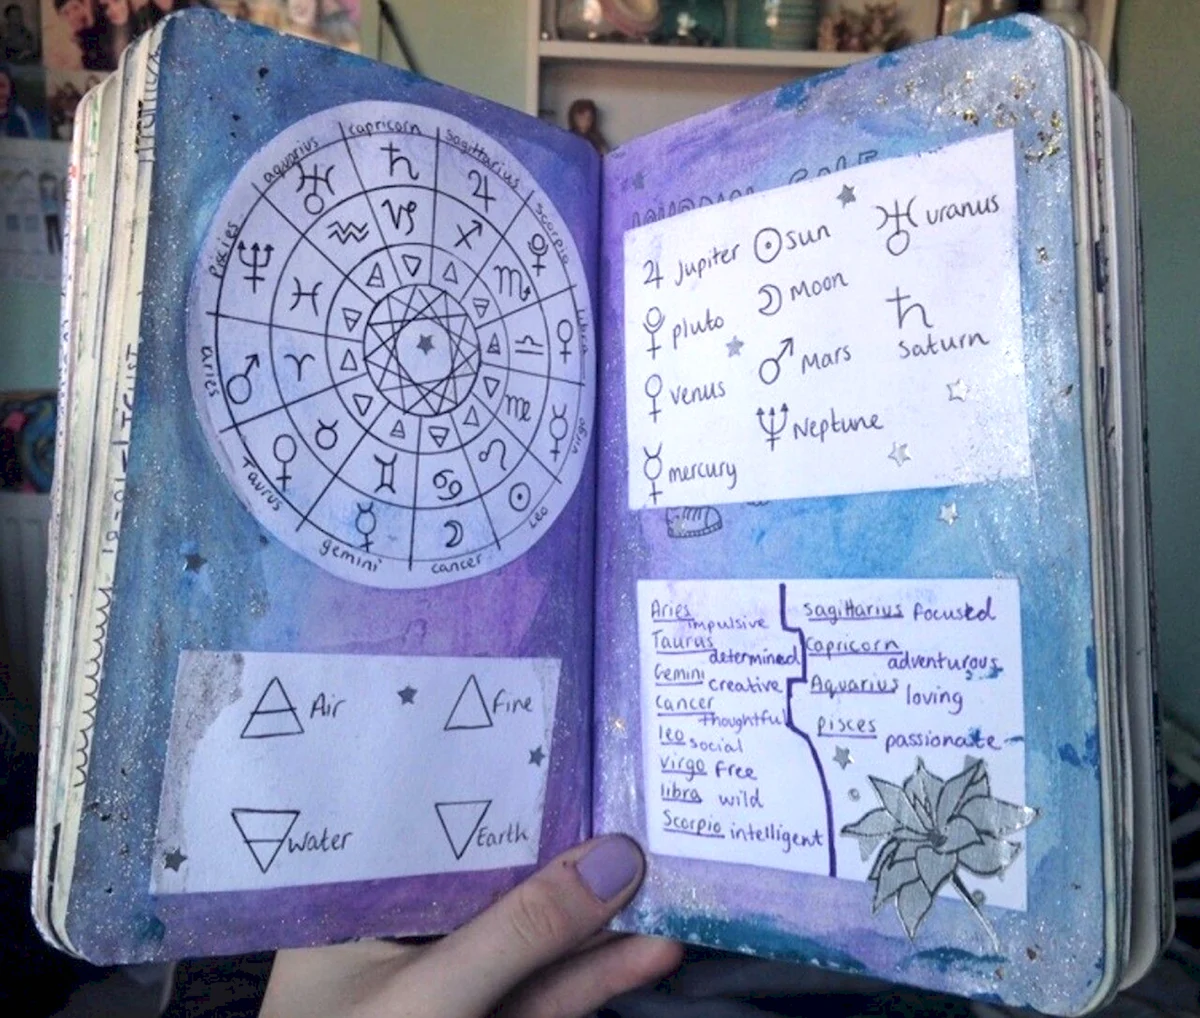 aquarius
capricorn
sagittarius
scorpio
libra
virgo
leo
cancer
gemini
Taurus
aries
Pisces
Air
Fire
Water
Earth
Jupiter
sun
uranus
pluto
Moon
venus
Mars
Saturn
mercury
Neptune
Aries
impulsive
Taurus
determined
Gemini
creative
Cancer
thoughtful
leo
social
Virgo free
libra wild
Scorpio intelligent
Sagittarius focused
Capricorn
adventurous
Aquarius loving
pisces
passionate